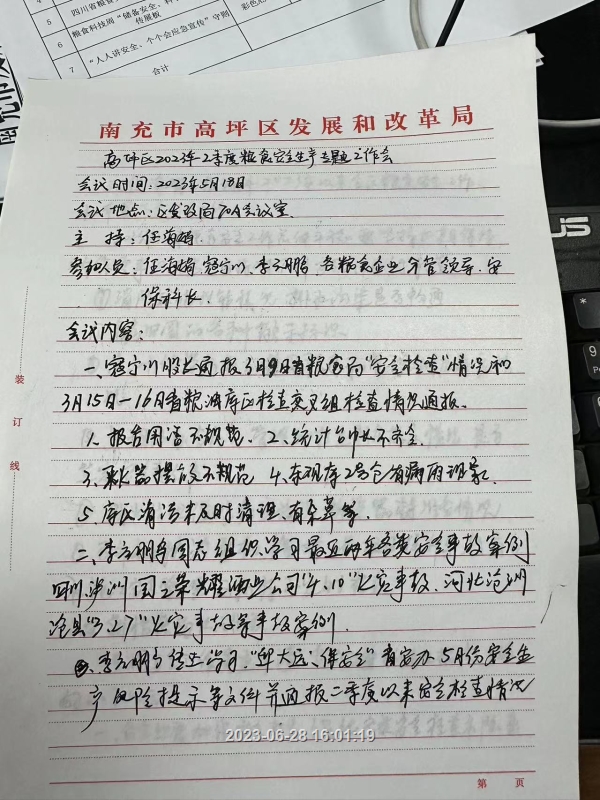 5 四川省粮食
6 粮食科技周“储备安全、科 传展板
7 “人人讲安全、个个会应急宣传”守则 彩色
合计
南充市高坪区发展和改革局
高坪区2023年2季度粮食安全生产专题工作会
会议时间:2023年5月18日
会议地点:区发改局701会议室.
主 持:任海娟.
参加人员:任海娟、寇宁川、李云鹏、各粮食企业分管领导、安
保科长.
会议内容:
一、寇宁川股长通报3月9日省粮食局“安全检查”情况和
3月15日—16日省粮油库区检查交叉组检查情况通报.
1、报告用语不规范. 2、统计台账不齐全.
3、灭火器摆放不规范 4、东观库2号仓有漏雨现象.
5、库区清洁未及时清理、有杂草等.
二、李云鹏同志组织学习最近两年各类安全事故案例
四川泸州国之荣耀酒业公司“4.10”火灾事故、河北沧州
沧县“3.27”火灾事故等事故案例.
李云鹏 学习 保安全” 省安办5月份安全生
产风险提示等文件并通报二季度以来安全检查情况
装
订
线
2023-06-28 16:01:19
第 页
US
9